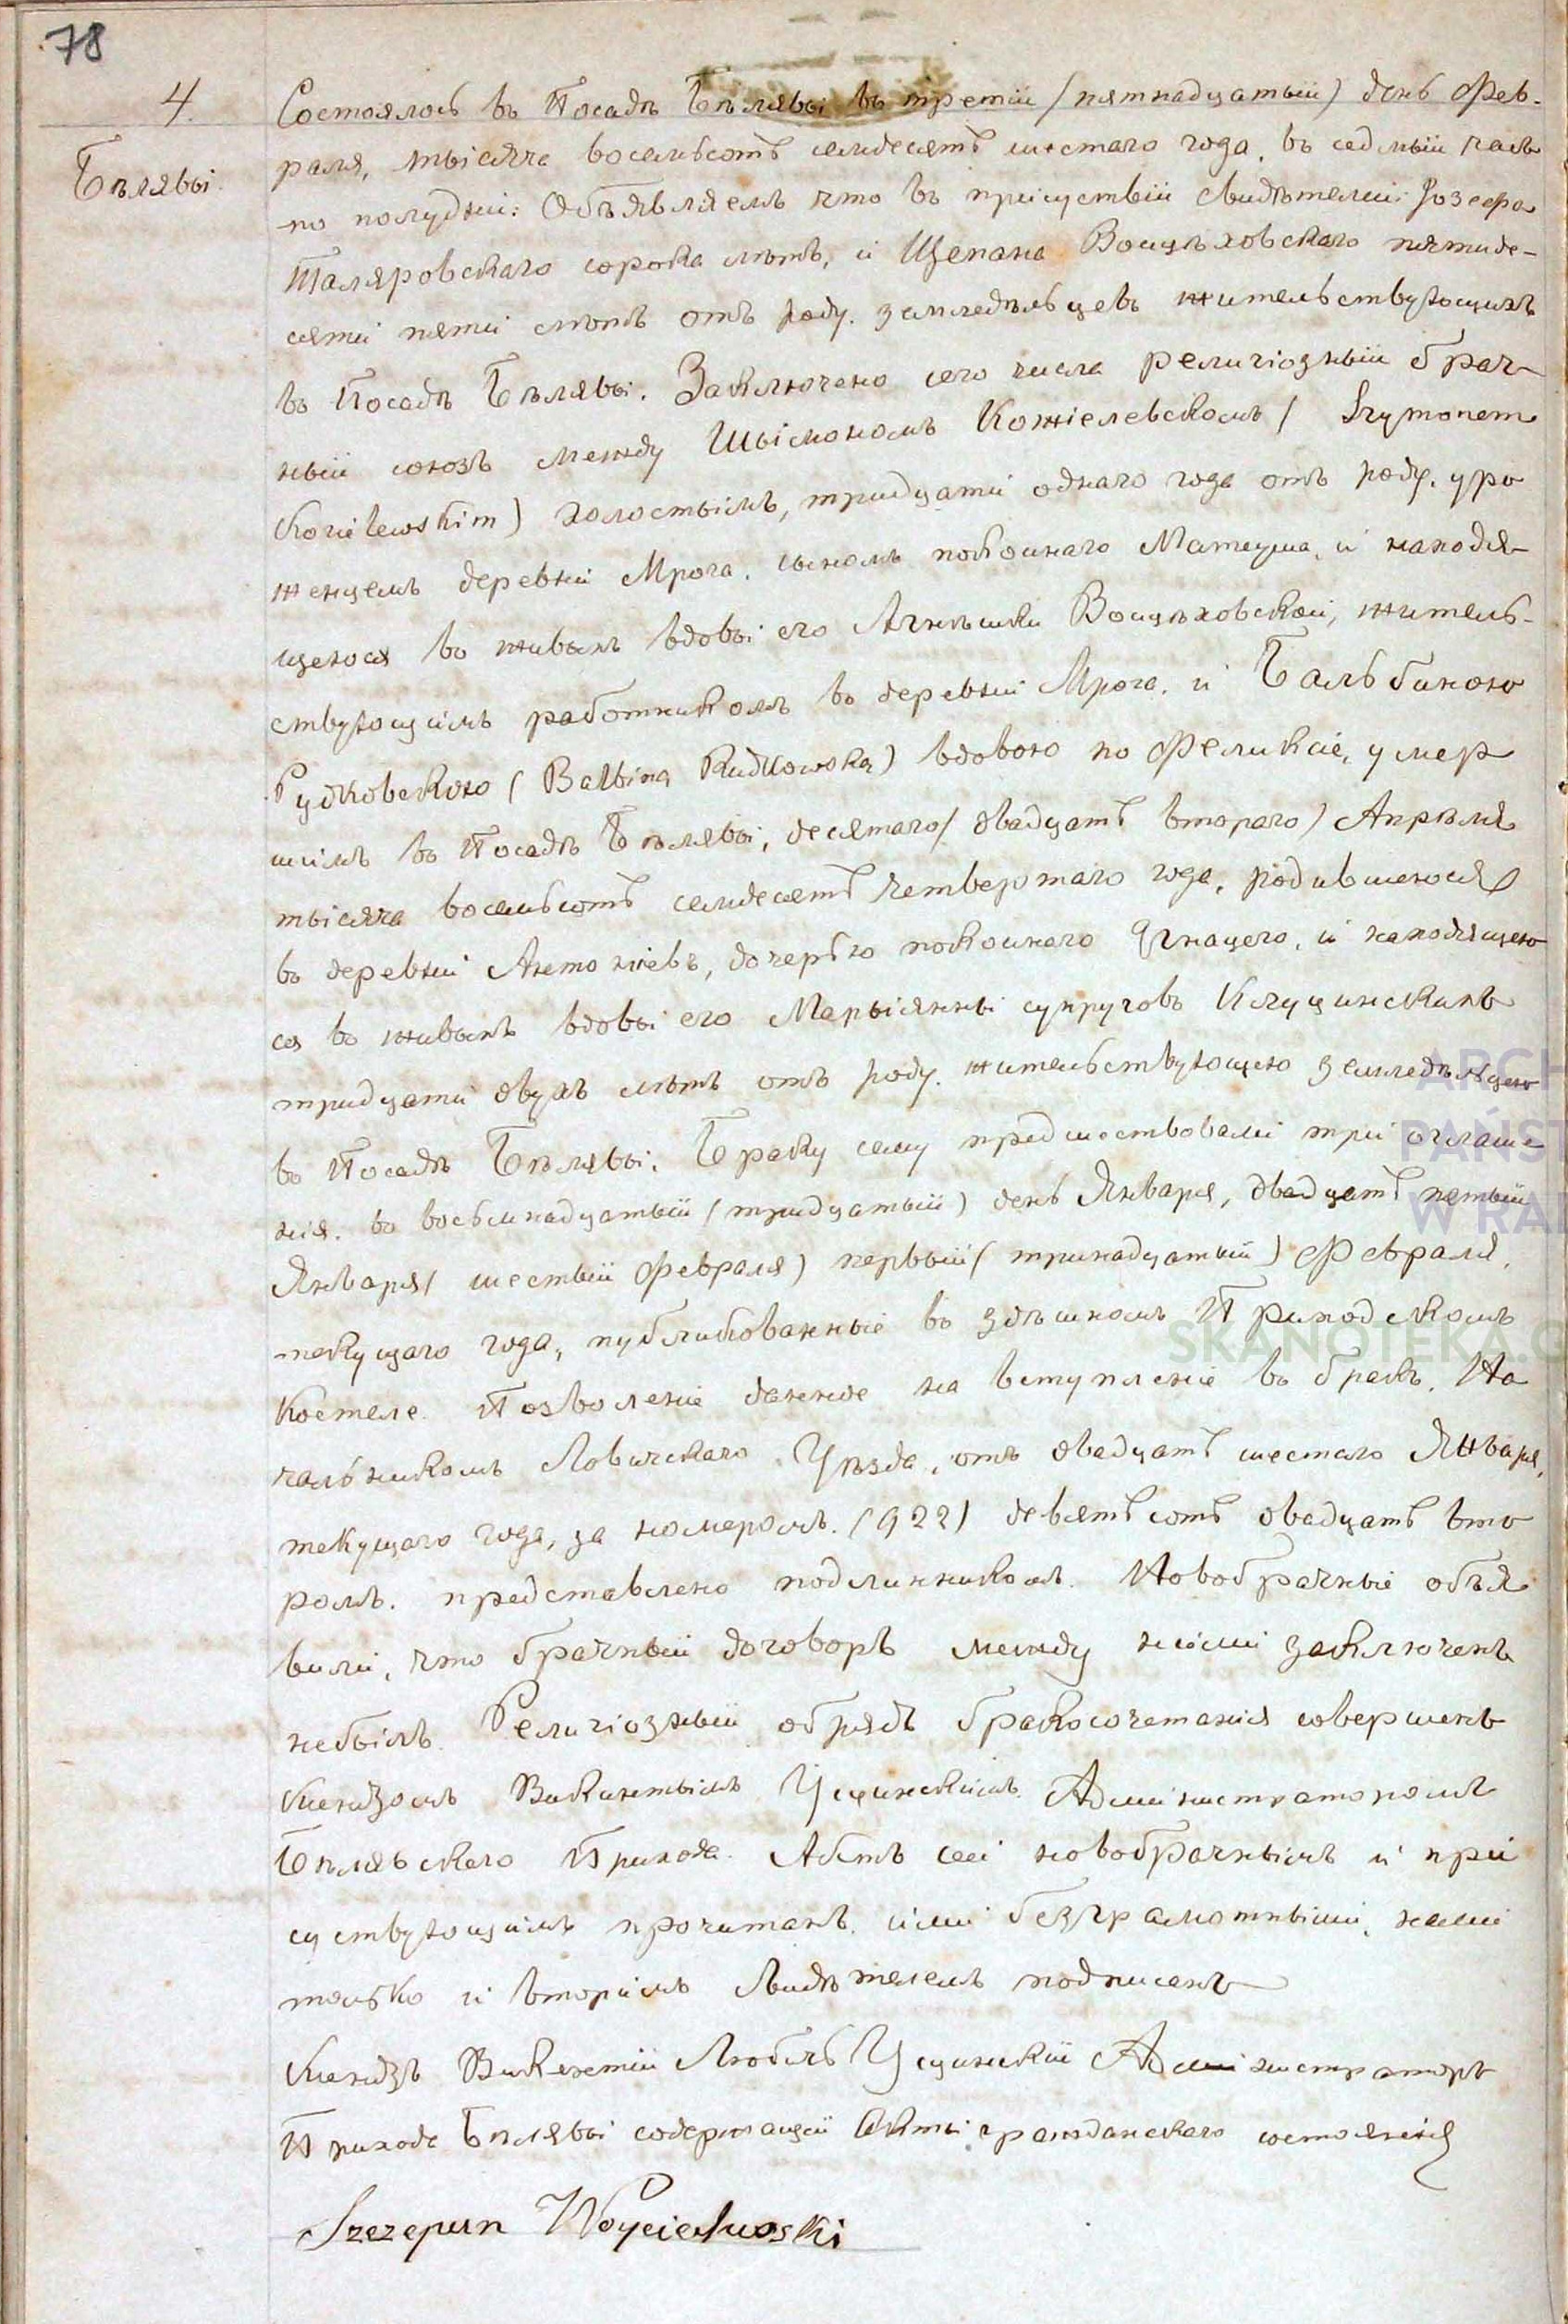 78
4.
Бѣлявы.
Состоялось въ Посадѣ Бѣлявы въ третій (пятнадцатый) день Фев-
раля, тысяча восемьсотъ семдесятъ шестаго года, въ седмый часъ
по полудни: Объявляемъ что въ присуствіи свидѣтелей: Іозефа
Таляровскаго сорока лѣтъ, и Щепана Войцѣховскаго пятиде-
сяти пяти лѣтъ отъ роду. земледѣльцевъ жительствующихъ
въ Посадѣ Бѣлявы. Заключено сего числа религіозный брач-
ный союзъ между Шымономъ Кожіелевскомъ (Szymonem
Kozielewskim) холостымъ, тридцати однаго года отъ роду. уро
женцемъ деревни Мрога. сыномъ покойнаго Матеуша, и находя-
щеюся въ живыхъ вдовы его Агнѣшки Войцѣховской, житель-
ствующимъ работникомъ въ деревни Мрога. и Бальбиною
Рудковскою (Balbina Rudkowska) вдовою по Феликсіе, умер
шимъ въ Посадѣ Бѣлявы, десятаго (двадцать втораго) Апрѣля
тысяча восемьсотъ семдесятъ четвертаго года, родившеюся
въ деревни Антоніевъ, дочерью покойнаго Игнацего, и находящею
ся въ живыхъ вдовы его Марыянны супруговъ Клуцинскихъ
тридцати двухъ лѣтъ отъ роду. жительствующею земледѣлцею
въ Посадѣ Бѣлявы. Браку сему предшествовали три оглаше
нія. въ восьмнадцатый (тридцатый) день Января, двадцать пятый
Января (шестый Февраля) первый (тринадцатый) Февраля,
текущаго года, публикованные въ здѣшномъ Приходскомъ
Костеле. Позволеніе данное на вступленіе въ бракъ. На
чальникомъ Ловичскаго Уѣзда, отъ двадцать шестаго Января,
текущаго года, за номеромъ. (922) девятьсотъ двадцать вто
ромъ. представлено подлинникомъ. Новобрачные объя
вили, что брачный договоръ между ними заключенъ
небылъ. Религіозный обрядъ бракосочетанія совершенъ
Ксендзомъ Викентымъ Усцинскимъ. Администраторомъ
Бѣлявскаго Прихода. Актъ сей новобрачнымъ и при
суствующимъ прочитанъ. ими безграмотными, нами
только и вторимъ свидѣтелемъ подписанъ
Ксендзъ Викентій Любичъ Усцинскій Администраторъ
Прихода Бѣлявы содержащій Акты гражданскаго состоянія
Szczepan Woyciechoski
ARCH
PAŃST
W RA
SKANOTEKA.G